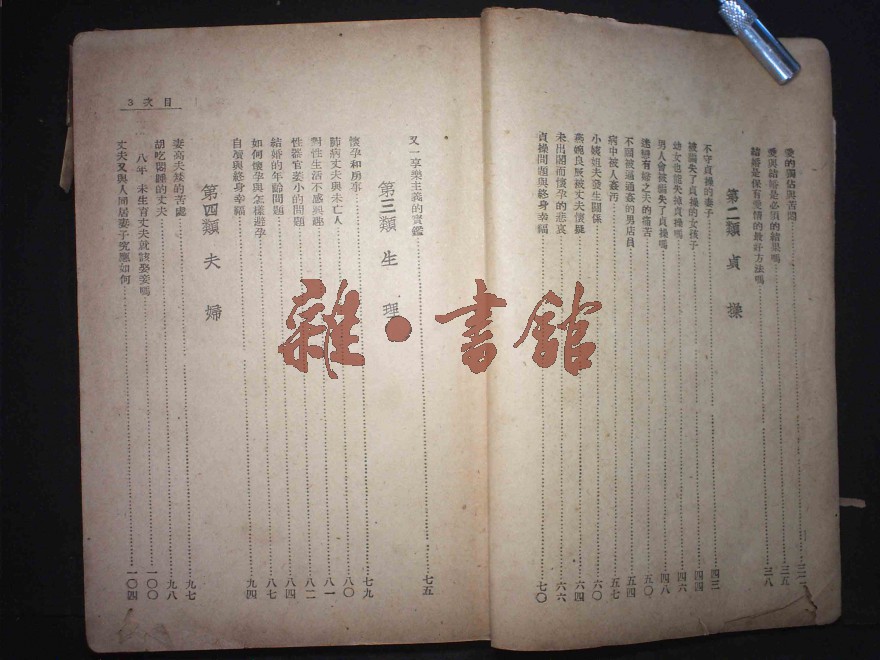 愛的獨佔與苦悶 三二
愛與結婚是必須的結果嗎 三五
結婚是保有愛情的最好方法嗎 三八
第二類 貞操
不守貞操的妻子 四三
被騙失了貞操的女孩子 四四
幼女也能失掉貞操嗎 四六
男人會被騙失了貞操嗎 四八
迷戀有婦之夫的痛苦 五〇
不願被逼通姦的男店員 五四
病中被人姦污 五七
小姨姐夫發生關係 六〇
燕婉良辰被丈夫懷疑 六四
未出閣而懷孕的悲哀 六六
貞操問題與終身幸福 七〇
又一享樂主義的實鑑 七五
第三類 生理
懷孕和房事 七九
肺病丈夫與未亡人 八〇
對性生活不感興趣 八一
性器官萎小的問題 八二
結婚的年齡問題 八四
如何懷孕與怎樣避孕 八七
自瀆與終身幸福 九四
第四類 夫婦
妻高夫矮的苦處 九七
胡吃悶醋的丈夫 九八
八年未生育丈夫就該娶妾嗎 一〇〇
丈夫又與人同居妻子究應如何 一〇四
目次 3
雜·書館